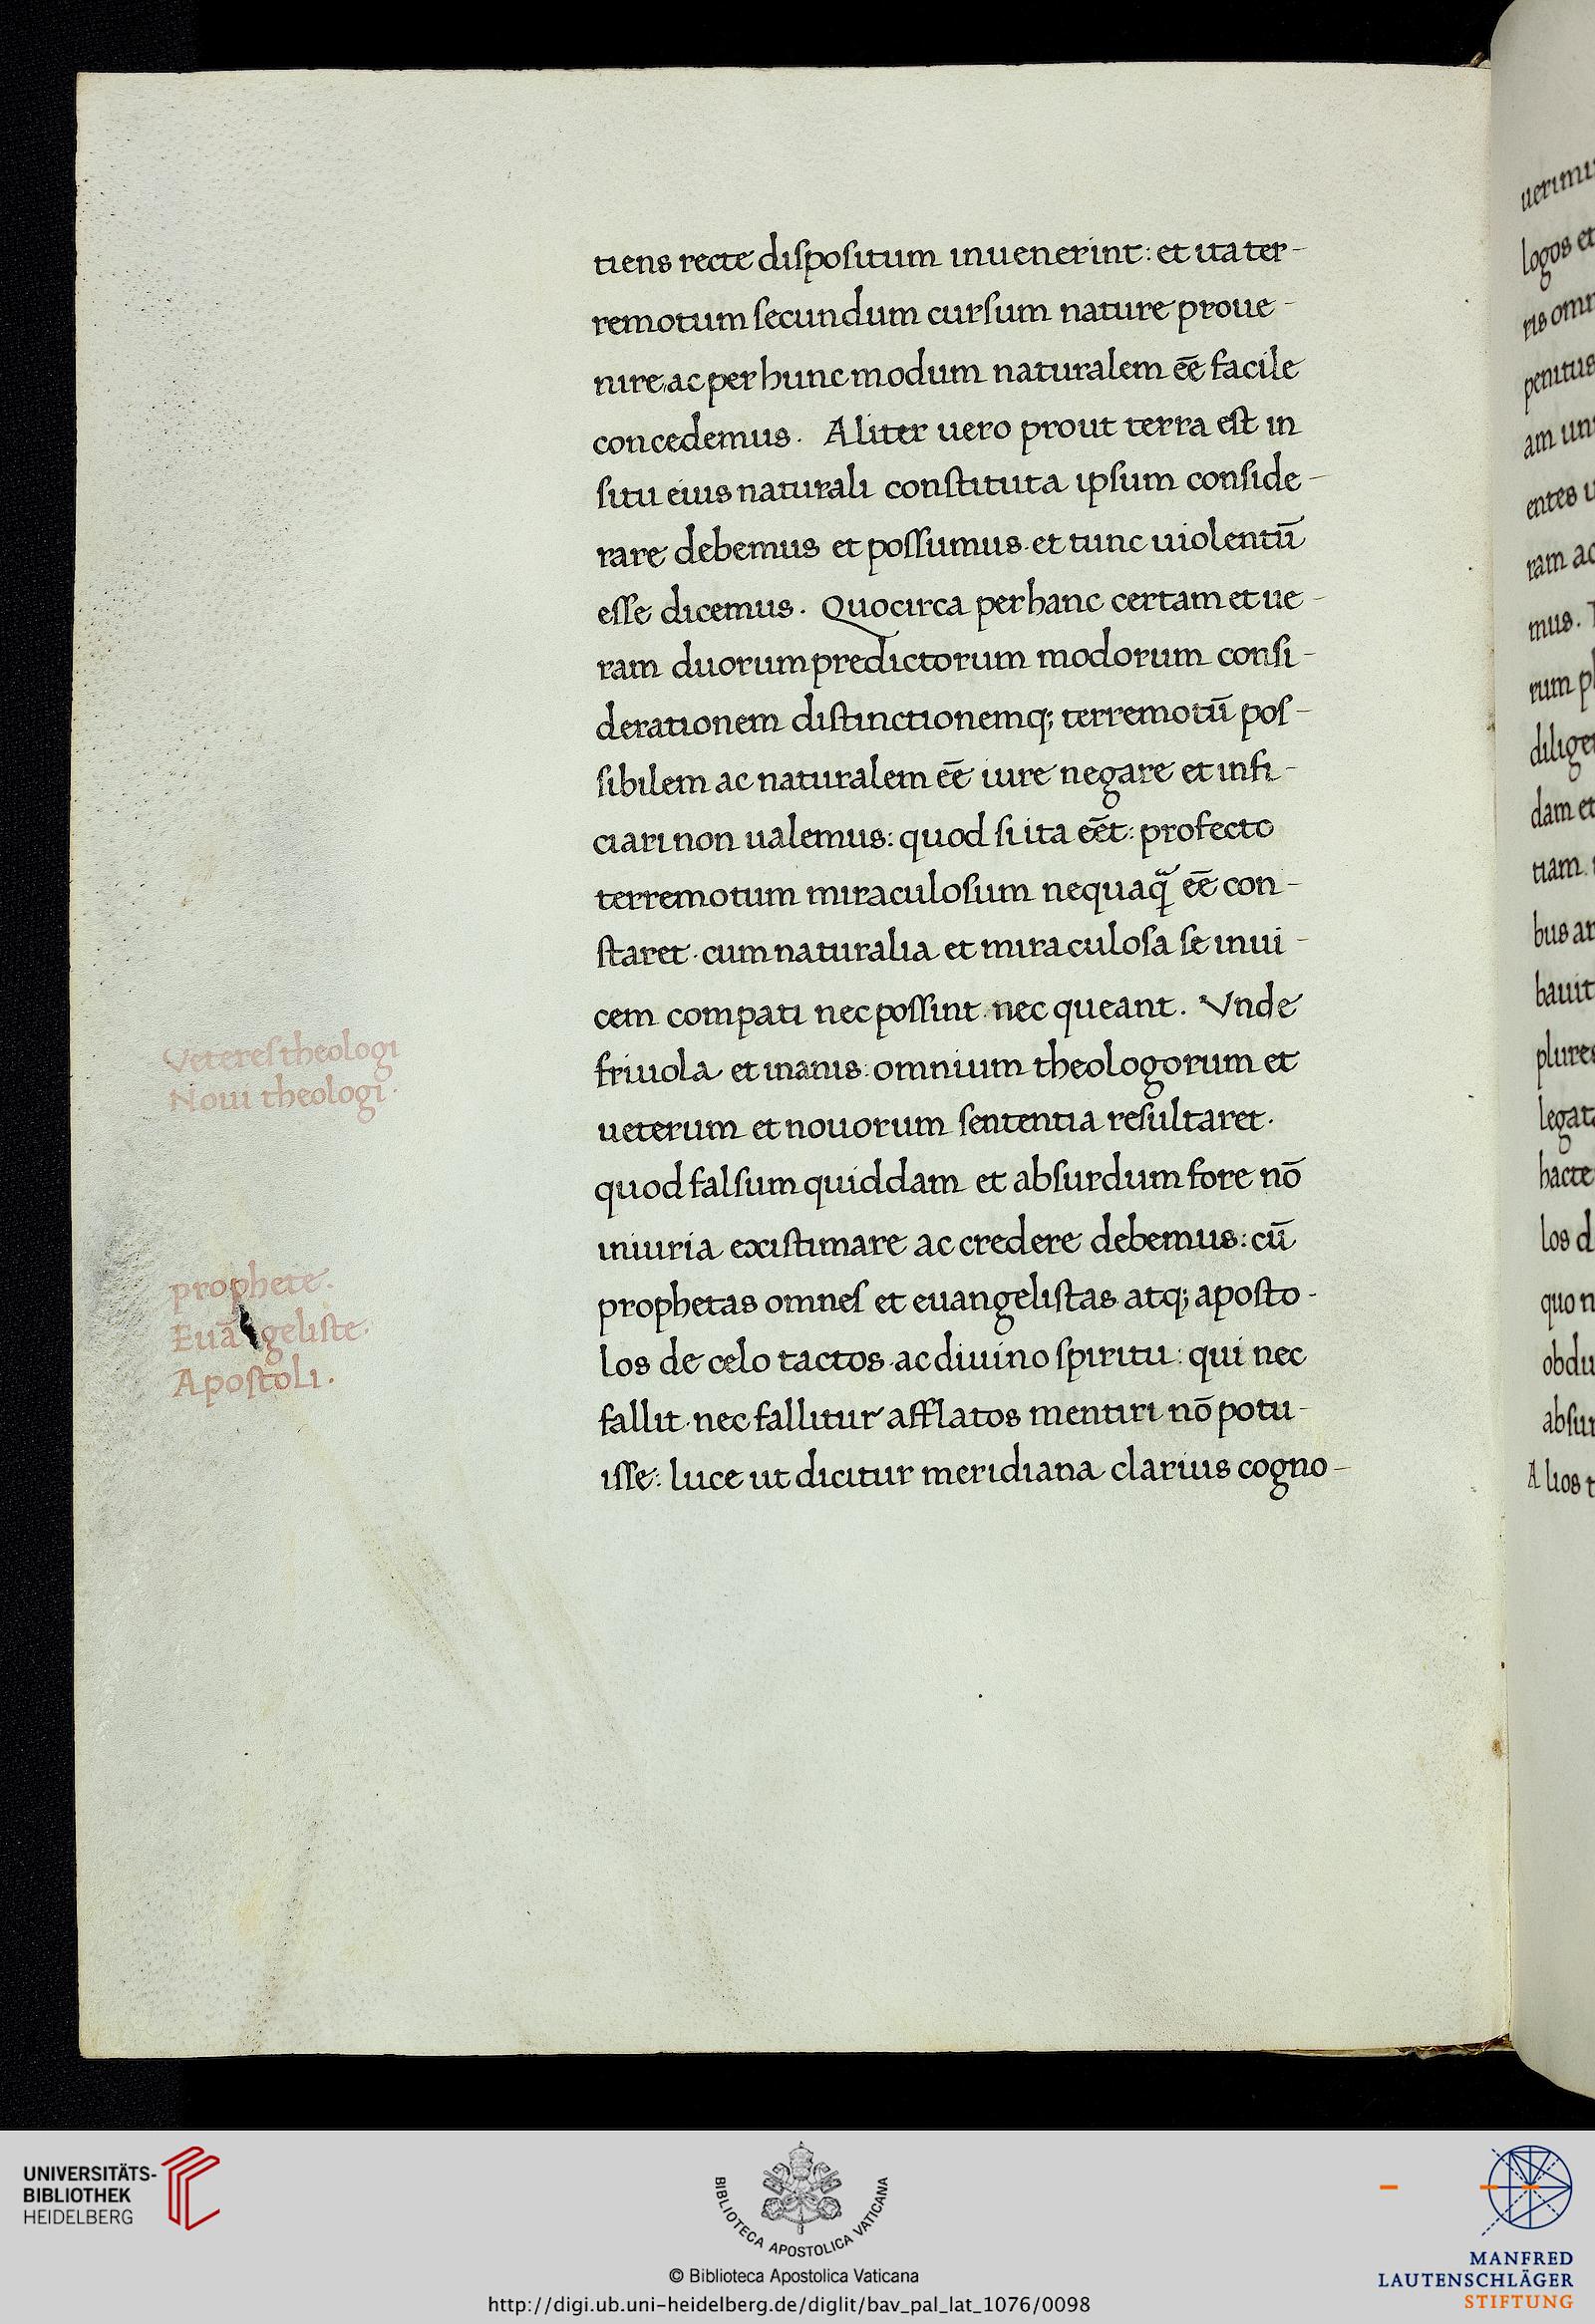 tiens recte dispositum inuenerint: et ita ter-
remotum secundum cursum nature proue-
nire, ac per hunc modum naturalem eē facile
concedemus. Aliter uero prout terra est in
situ eius naturali constituta ipsum conside-
rare debemus et possumus. et tunc uiolentū
esse dicemus. Quocirca per hanc certam et ue-
ram duorum predictorum modorum consi-
derationem distinctionemq; terremotū pos-
sibilem ac naturalem eē iure negare et infi-
ciari non ualemus: quod si ita eēt: profecto
terremotum miraculosum nequaq̃ eē con-
staret. cum naturalia et miraculosa se inui-
cem compati nec possint. nec queant. Vnde
friuola et inanis. omnium theologorum et
ueterum et nouorum sententia resultaret.
quod falsum quiddam et absurdum fore nō
iniuria existimare ac credere debemus: cū
prophetas omnes et euangelistas atq; aposto-
los de celo tactos. ac diuino spiritu: qui nec
fallit. nec fallitur afflatos mentiri nō potu-
isse: luce ut dicitur meridiana clarius cogno-
Veteres theologi
Noui theologi.
prophete.
Euāgeliste.
Apostoli.
uerimu
logos et
ris omn
penitus
am un
entes u
ram ac
mus. T
rum pl
dilige
dam et
tiam.
bus ar
bauit
plures
legat
hacte
los d
quo n
obdu
absur
Alios t
UNIVERSITÄTS-
BIBLIOTHEK
HEIDELBERG
BIBLIOTECA APOSTOLICA VATICANA
© Biblioteca Apostolica Vaticana
http://digi.ub.uni-heidelberg.de/diglit/bav_pal_lat_1076/0098
MANFRED
LAUTENSCHLÄGER
STIFTUNG